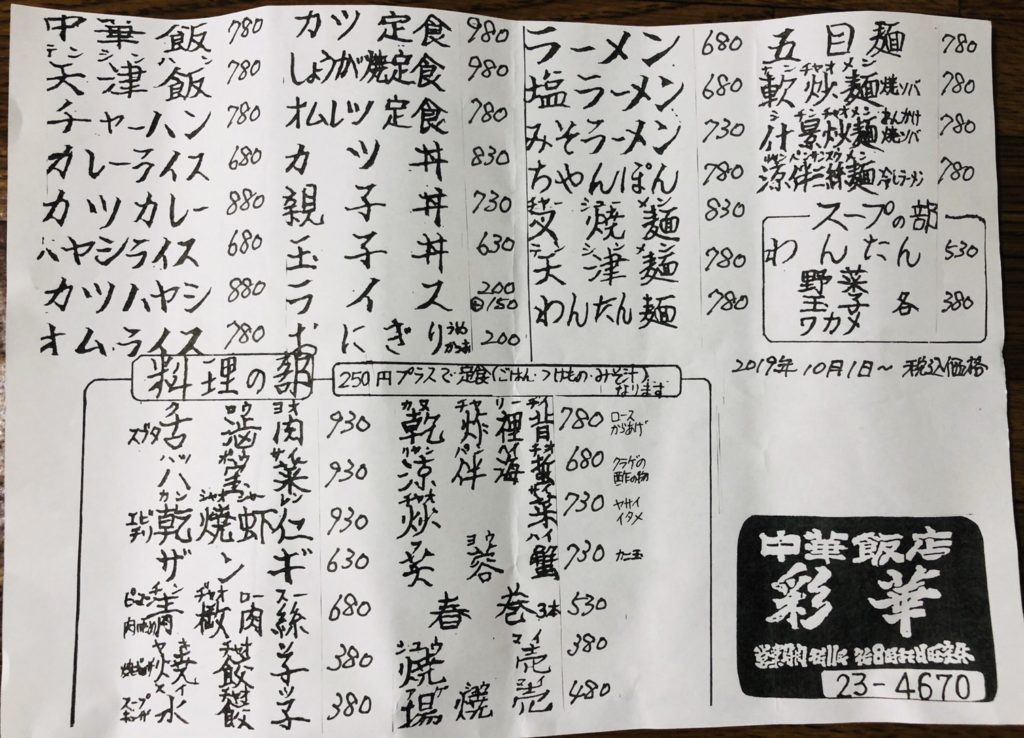 中華飯 780
天津飯 780
テンシンハン
チャーハン 780
カレーライス 680
カツカレー 880
ハヤシライス 680
カツハヤシ 880
オムライス 780
カツ定食 980
しょうが焼定食 980
オムレツ定食 780
カツ丼 830
親子丼 730
玉子丼 630
ライス 200
150
おにぎり うめ かつお 200
ラーメン 680
塩ラーメン 680
みそラーメン 730
ちゃんぽん 780
叉焼麺 830
チャーシューメン
天津麺 780
テンシンメン
わんたん麺 780
五目麺 780
軟炒麺 焼ソバ 780
什景炒麺 あんかけ 焼ソバ 780
涼伴三絲麺 冷しラーメン 780
スープの部
わんたん 530
野菜
玉子 各 380
ワカメ
2019年10月1日〜 税込価格
料理の部
250円プラスで定食(ごはん・つけもの・みそ汁)
なります
スブタ 古滷肉 930
クロウヨオ
八宝菜 930
エビチリ 乾焼蝦仁 930
ザンギ 630
青椒肉絲 680
餃子 380
スープ 水餃子 380
乾炸裡背 780 ロース からあげ
涼伴海蜇 680 クラゲの 酢の物
炒菜 730 ヤサイ イタメ
芙蓉蟹 730 カニ玉
ヨウハイ
春巻 3本 530
焼売 380
揚焼売 480
中華飯店
彩華
23-4670